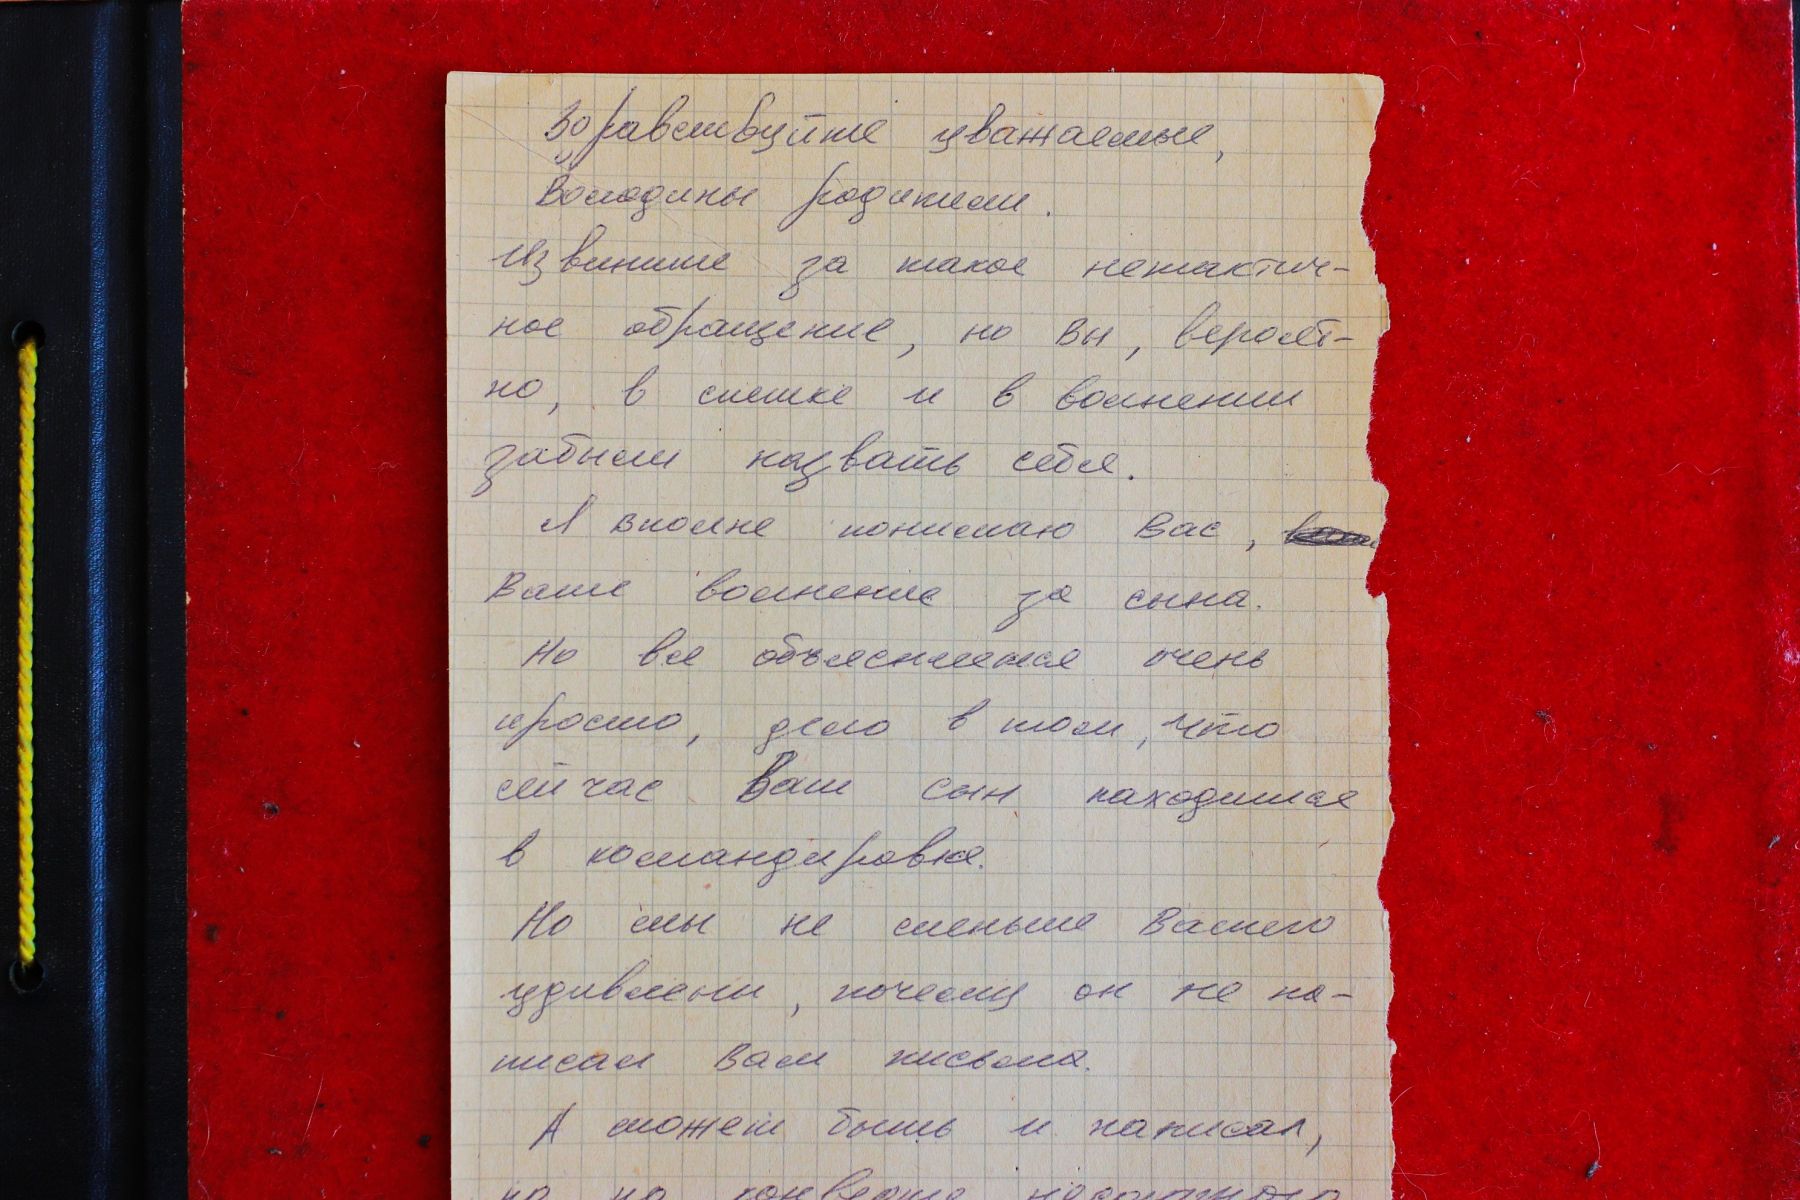 Здравствуйте уважаемые,
Володины родители.
Извините за такое нетактич-
ное обращение, но Вы, вероят-
но, в спешке и в волнении
забыли назвать себя.
Я вполне понимаю Вас,
Ваше волнение за сына.
Но все объясняется очень
просто, дело в том, что
сейчас Ваш сын находится
в командировке.
Но мы не меньше Вашего
удивлены, почему он не на-
писал Вам письма.
А может быть и написал,
но на конверте